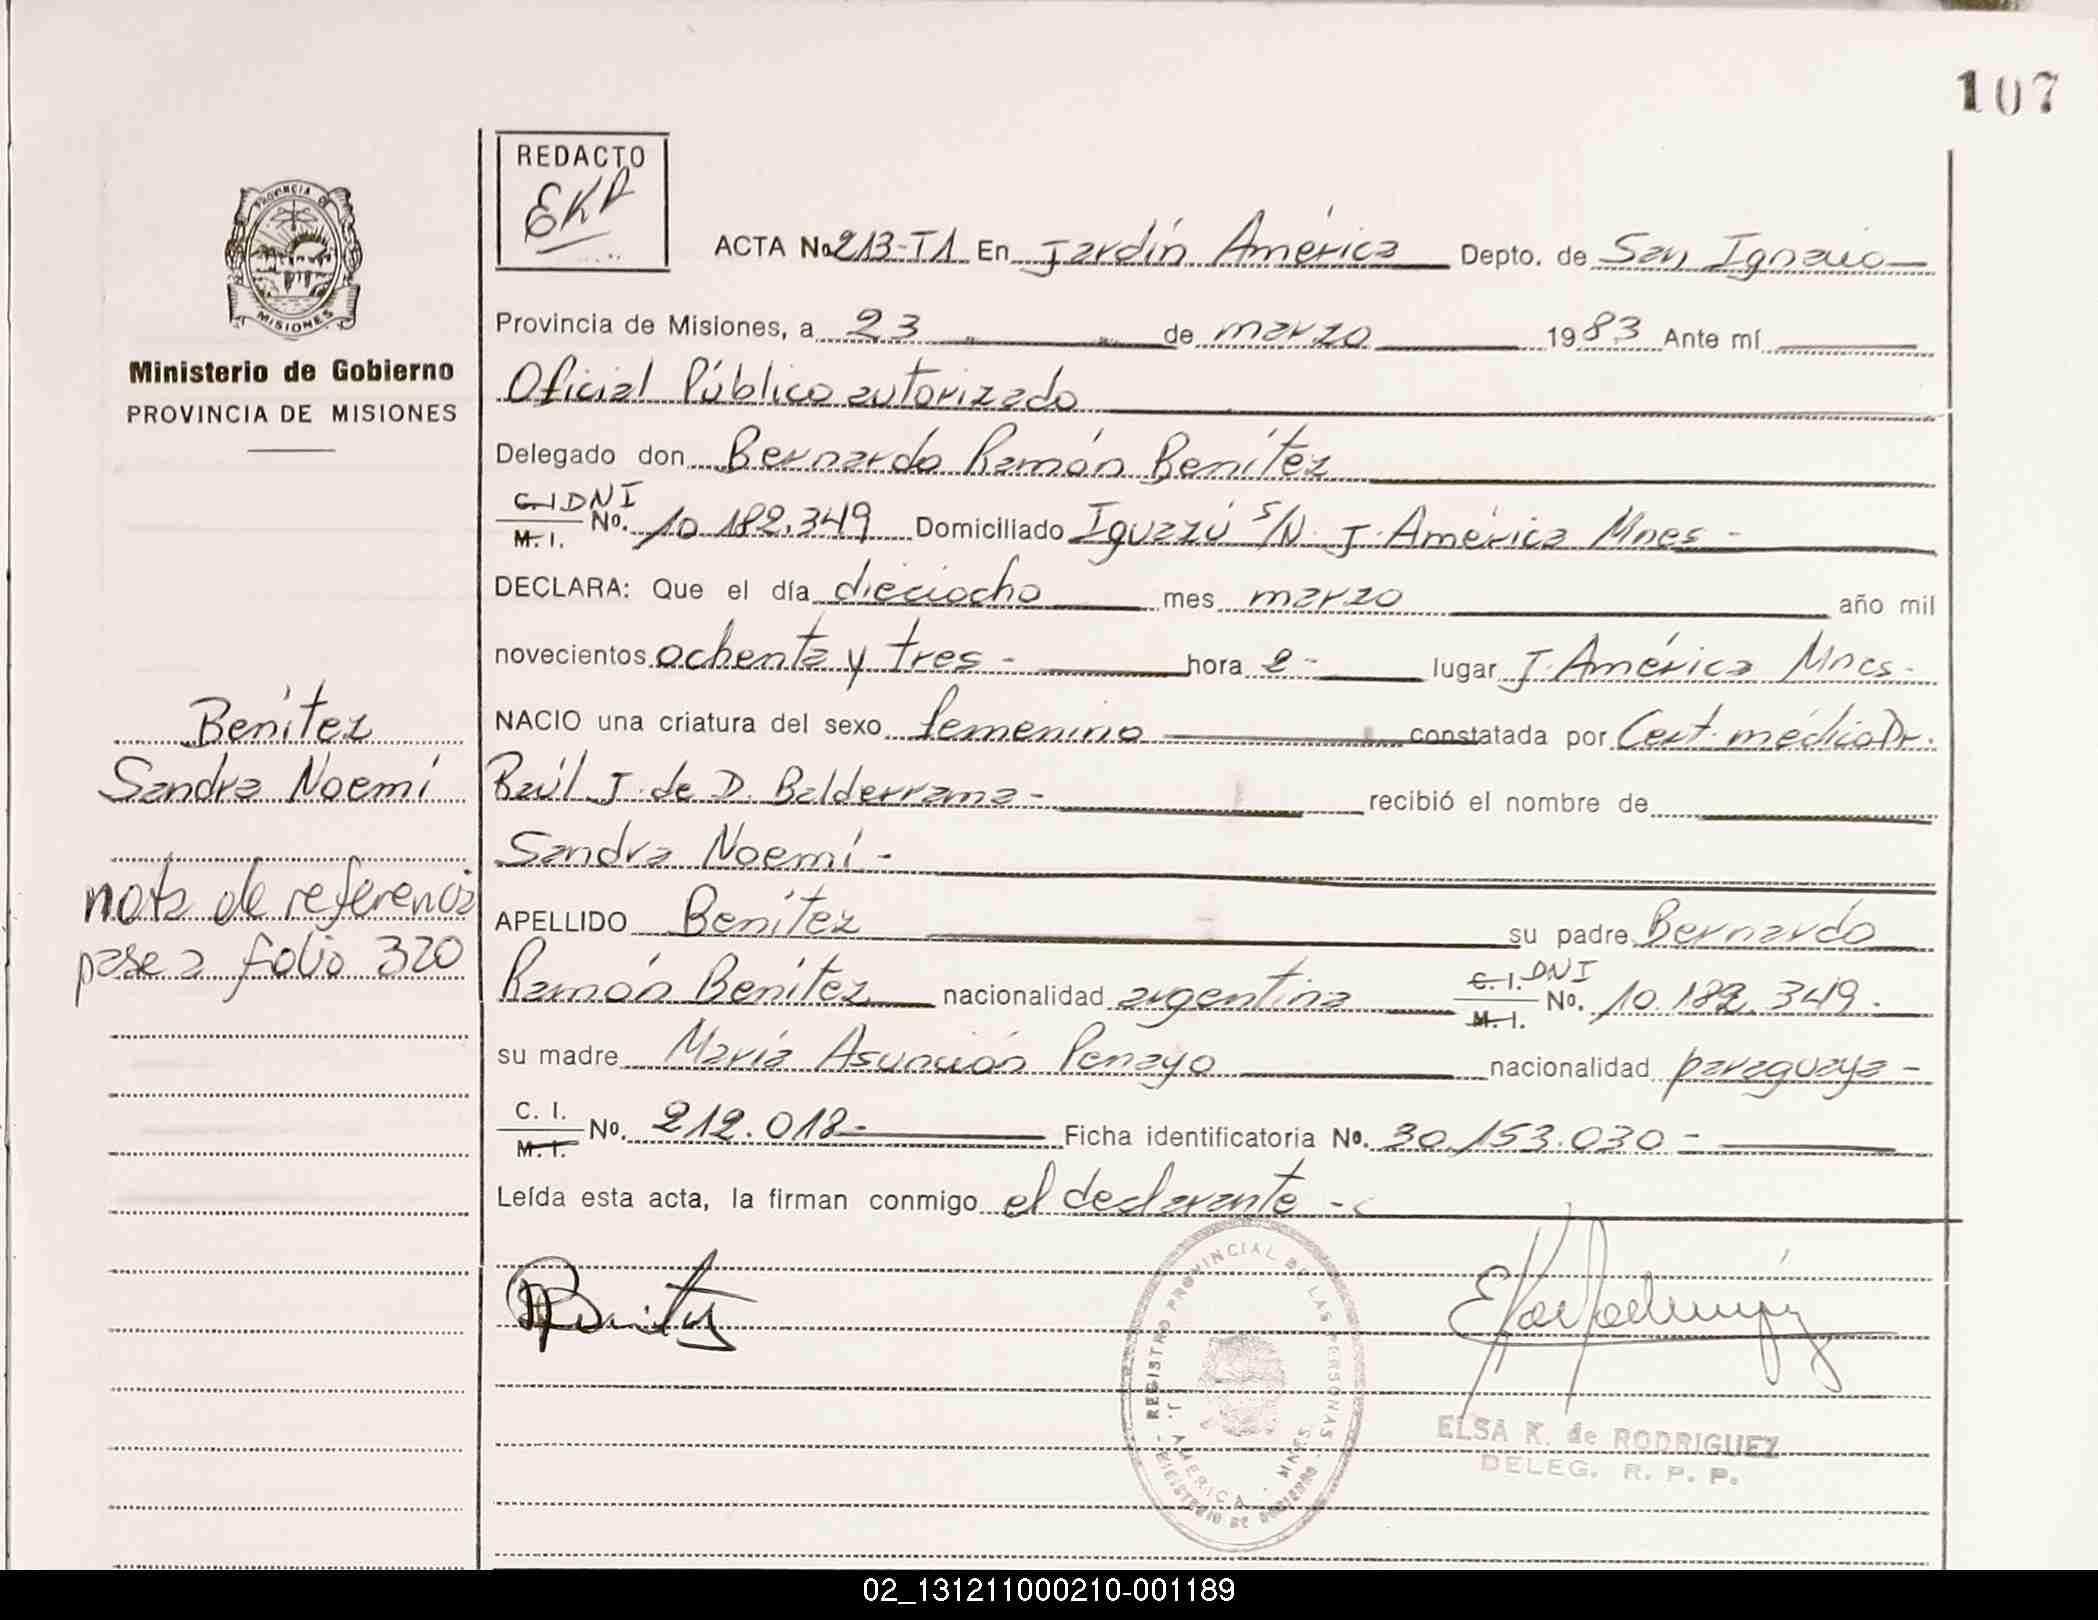 107
REDACTO
EKR
PROVINCIA DE
MISIONES
Ministerio de Gobierno
PROVINCIA DE MISIONES
ACTA No 213-T1 En Jardín América Depto. de San Ignacio
Provincia de Misiones, a 23 de marzo 1983 Ante mí
Oficial Público autorizado
Delegado don Bernardo Ramón Benítez
C.I. DNI
M. I. No. 10.182.349 Domiciliado Iguazú S/N. J. América Mnes -
DECLARA: Que el día dieciocho mes marzo año mil
novecientos ochenta y tres - hora 2 - lugar J. América Mnes -
NACIO una criatura del sexo femenino constatada por Cert. médico Dr.
Raúl J. de D. Balderrama - recibió el nombre de
Sandra Noemí -
APELLIDO Benítez su padre Bernardo
Ramón Benítez nacionalidad argentina C. I. DNI M. I. No. 10.182.349.
su madre María Asunción Penayo nacionalidad paraguaya -
C. I.
M. I. No. 212.018 - Ficha identificatoria No. 30.153.030 -
Leída esta acta, la firman conmigo el declarante -
Benítez
Sandra Noemí
nota de referencia
pase a folio 320
Benitez
REGISTRO PROVINCIAL DE LAS PERSONAS
J. AMERICA - MNES.
MINISTERIO DE GOBIERNO
ELSA K. de RODRIGUEZ
DELEG. R. P. P.
02_131211000210-001189